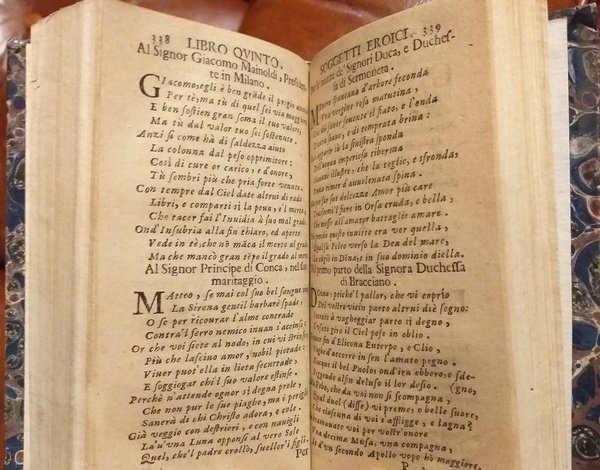 338 LIBRO QVINTO.
Al Signor Giacomo Mainoldi, Presiden-
te in Milano.
GIacomo, egli è ben grãde il prigio
Per tè, ma tù di quel sei via maggiore
E ben sostien gran soma il tuo valore,
Ma tù dal valor tuo sei sostenuto.
Anzi sì come hà di saldezza aiuto
La colonna dal peso opprimitore:
Così di cure or carico, e d'onore,
Tù sembri più che pria forte venuto.
Con tempre dal Ciel date altrui da rado
Libri, e comparti sì la pena, e'l merto,
Che tacer fai l'Inuidia à suo mal grado.
Ond'Insubria alla fin chiaro, ed aperto
Vede in tè, chè nõ mãca il merto al grado
Ma che mancò gran tempo il grado al
Al Signor Principe di Conca, nel suo
maritaggio.
MAtteo, se mai col suo bel sangue
La Sirena gentil barbare spade,
O se per ricourar l'alme contrade
Contra'l ferro nemico inuan s'accinse:
Or che voi siete al nodo, in cui vi strinse
Più che lasciuo amor, nobil pietade:
Viuer può ella in lieta securtade,
E soggiogar chi'l suo valore estinse.
Perchè n'attende ognor sì degna prole,
Che non pur le sue piaghe, ma i perigli
Sanerà di chi Christo adora, e cole.
Già veggio con destrieri, e con nauigli
La'u'vna Luna opponsi al vero Sole
Quel, che'l padre crollò, sueller'i figli.
Per
SOGGETTI EROICI. 339
nozze de' Signori Duca, e Duches-
sa di Sermoneta.
d'arbore feconda
vergine rosa matutina,
Cui da fauor souente il fiato, e l'onda
D'aura soaue, e di temprata brina:
la sinistra sponda
Dell'acqua imperiosa tiberina
illustre, che la coglie, e sfronda,
d'auuelenata spina.
far sue dolcezze Amor più care
Trasformò il fiore in Orsa cruda, e bella,
all'amator battaglie amare.
perchè questo inuitto era ver quella,
Qual fù Peleo verso la Dea del mare,
in Dõna, e in suo dominio diella.
primo parto della Signora Duchessa
di Bracciano.
peichè'l pallor, che vi coprìo
Del vostro vicin parto altrui diè segno:
vagheggiar parto sì degno,
giro il Ciel pose in oblio.
d'Elicona Euterpe, e Clio,
d'accorre in sen l'amato pegno.
il bel Paolo, ond'ira ebbero, e sde-
alfin deluso il lor desio. (gno,
che da voi non si scompagna,
duol (disse) vi preme, o belle suore,
Che ciascuna di voi s'affligge, e lagna?
voi vostr'onore
decima Musa, vna compagna,
d'vn secondo Apollo vopo hò maggiore.